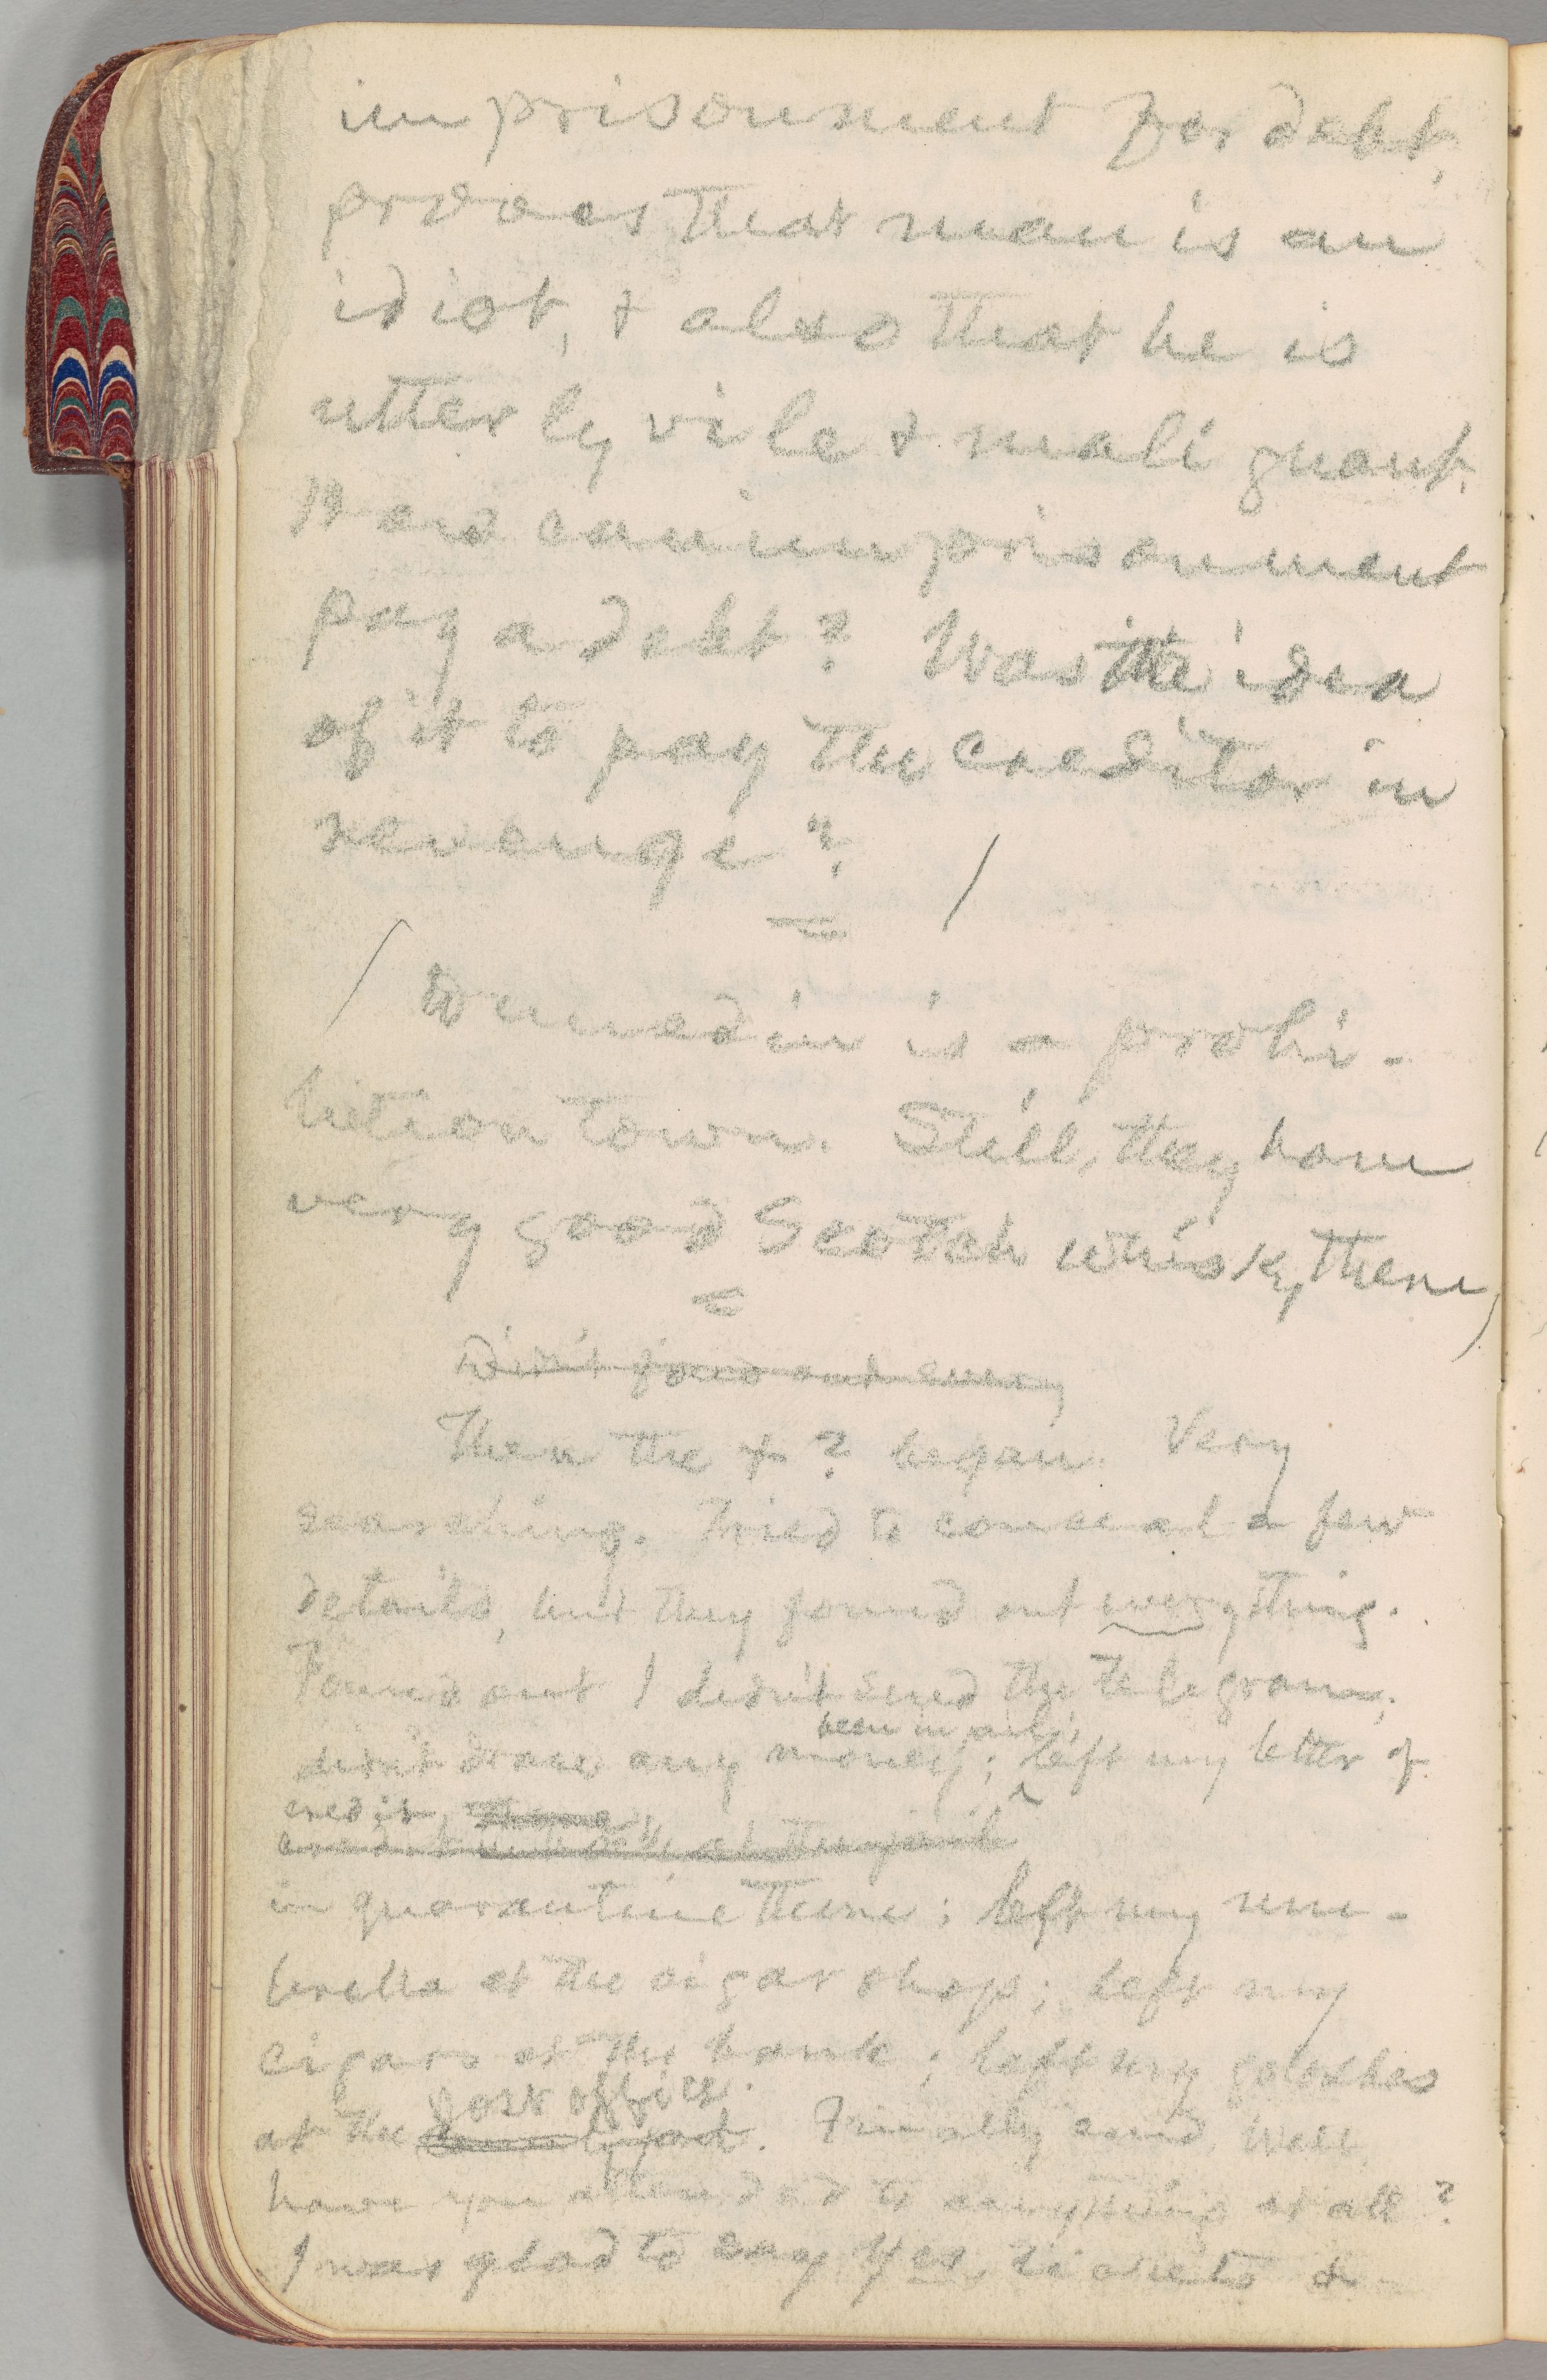 imprisonment for debt,
proves that man is an
idiot, & also that he is
utterly vile & malignant.
How can imprisonment
pay a debt? Was the idea
of it to pay the creditor in
revenge?
Dunedin is a prohi-
bition town. Still, they have
very good Scotch whisky there
Didn't find out every
Then the + ? began. Very
searching. Tried to conceal a few
details, but they found out everything.
Found out I didn't send the telegram;
been in jail;
didn't draw any money; left my letter of
credit,
at the jail
in quarantine there; left my um-
brella at the cigar shop; left my
cigars at the bank; left my goloshes
post office.
at the Finally said, Well
have you attended to anything at all?
I was glad to say Yes, tickets &